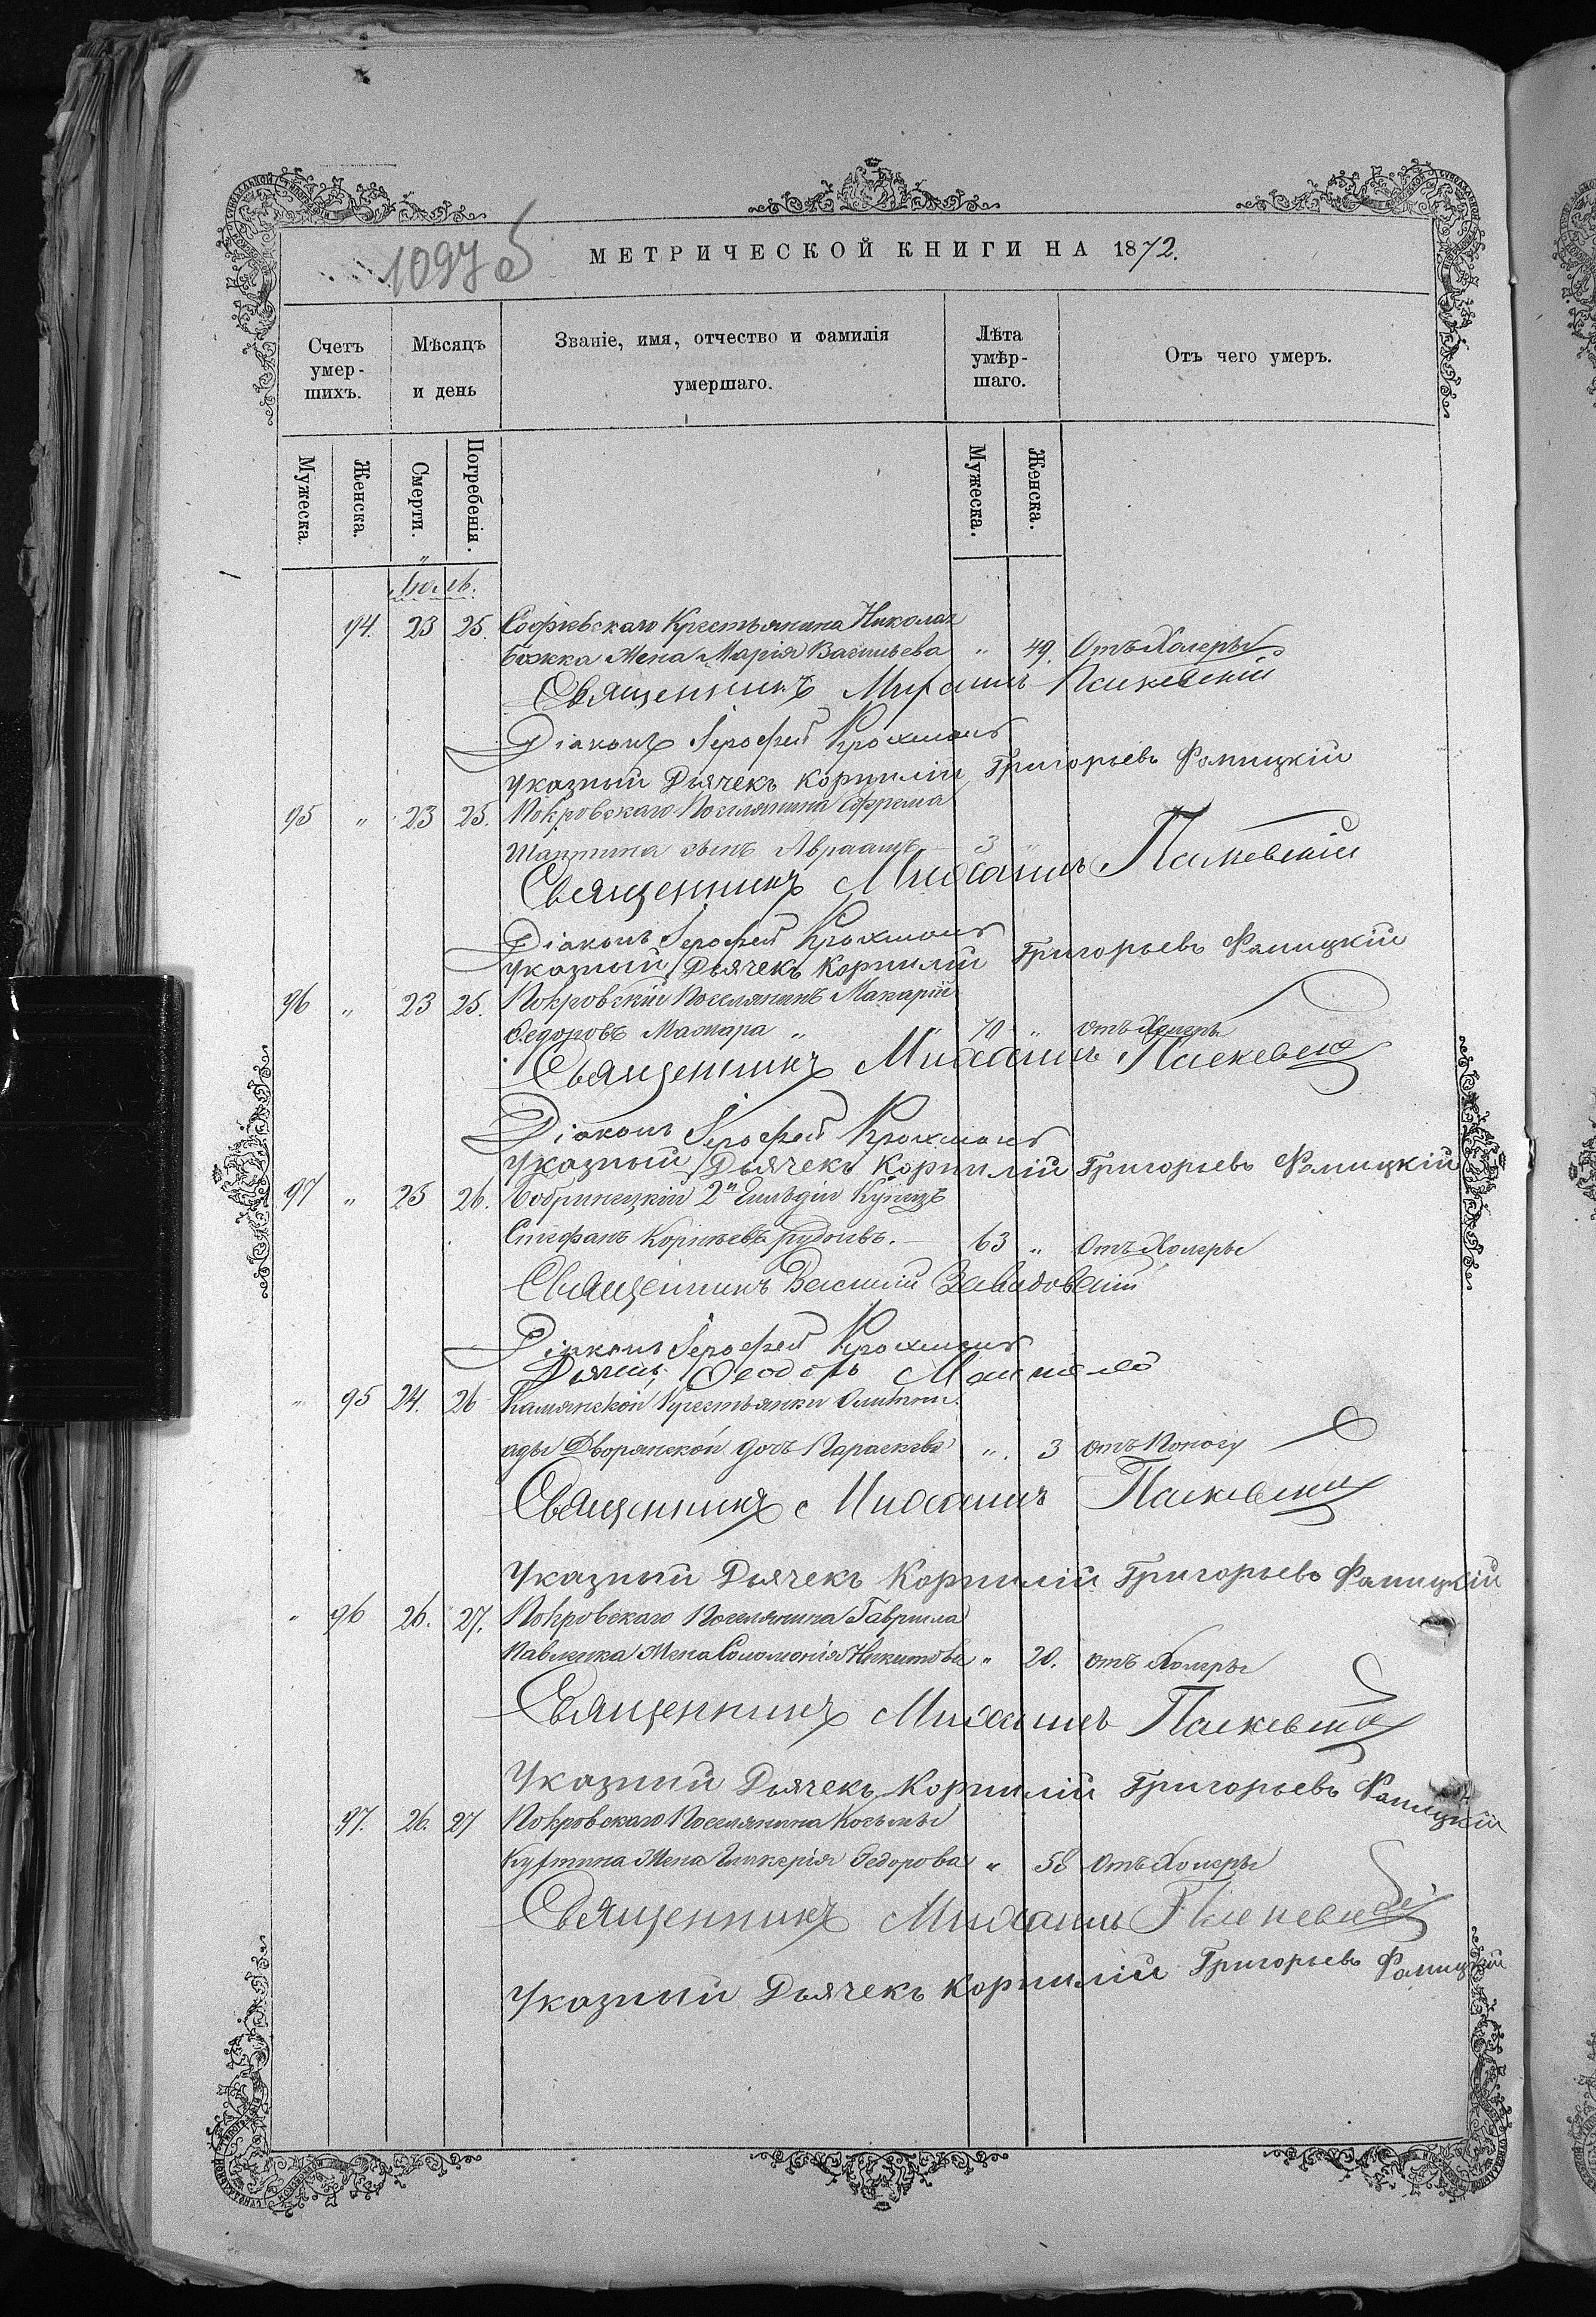 1097 б
МЕТРИЧЕСКОЙ КНИГИ НА 1872.
Счетъ умерших. Мѣсяцъ и день Званіе, имя, отчество и фамилія умершаго. Лѣта умѣршаго. Отъ чего умеръ.
Мужеска. Женска. Смерти. Погребенія. Мужеска. Женска.
Іюль.
94. 23 25. Софіевскаго Крестьянина Николая
Божка Жена Марія Васильева " 49. Отъ Холеры
Священникъ Михаилъ Паскевскій
Діаконъ Іерофей Крохмаль
Указный Дьячекъ Корнилій Григорьевъ Фомицкій
95 " 23 25. Покровскаго Поселянина Ефрема
сынъ Авраамъ 3 "
Священникъ Михаилъ Паскевскій
Діаконъ Іерофей Крохмаль
Указный Дьячекъ Корнилій Григорьевъ Фомицкій
96 " 23 25. Покровскій Поселянинъ Макарій
Федоровъ Мажара " 70 " отъ Холеры
Священникъ Михаилъ Паскевскій
Діаконъ Іерофей Крохмаль
Указный Дьячекъ Корнилій Григорьевъ Фомицкій
97 " 25 26. Бобринецкій 2й Гильдіи Купецъ
Стефанъ Корнѣевъ 63 " Отъ Холеры
Священникъ Василій Завадовскій
Діаконъ Іерофей Крохмаль
Дьячекъ Феодоръ
" 95 24. 26 Камянской Крестьянки
Дворянской дочь Параскева " 3 отъ Поносу
Священникъ Михаилъ Паскевскій
Указный Дьячекъ Корнилій Григорьевъ Фомицкій
" 96 26. 27. Покровскаго Поселянина Гавріила
Павленка Жена Соломонія Никитова " 20. отъ Холеры
Священникъ Михаилъ Паскевскій
Указный Дьячекъ Корнилій Григорьевъ Фомицкій
97. 26. 27 Покровскаго Поселянина Косьмы
Жена Гликерія Федорова " 58 Отъ Холеры
Священникъ Михаилъ Паскевскій
Указный Дьячекъ Корнилій Григорьевъ Фомицкій